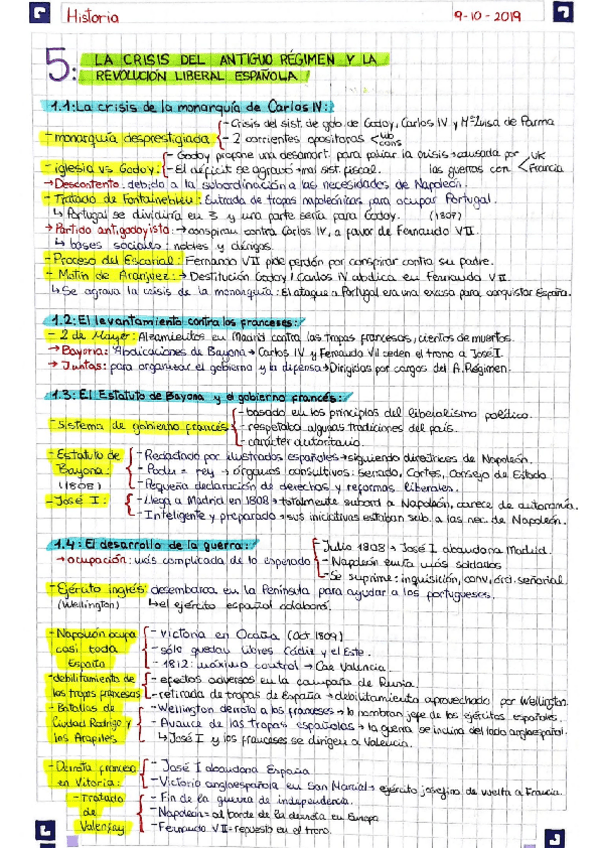 Historia
9-10-2019
5: LA CRISIS DEL ANTIGUO RÉGIMEN Y LA
REVOLUCIÓN LIBERAL ESPAÑOLA
1.1: La crisis de la monarquía de Carlos IV:
- monarquía desprestigiada { - Crisis del sist. de gob. de Godoy, Carlos IV y Mª Luisa de Parma
- 2 corrientes opositoras < lib cons
- iglesia vs Godoy: { - Godoy propone una desamort. para paliar la crisis → causada por
- El déficit se agravó → mal sist. fiscal. las guerras con < UK Francia
→ Descontento: debido a la subordinación a las necesidades de Napoleón.
- Tratado de Fontainebleu: Entrada de tropas napoleónicas para ocupar Portugal.
↳ Portugal se dividiría en 3 y una parte sería para Godoy. (1807)
→ Partido antigodoyista: → conspiran contra Carlos IV, a favor de Fernando VII.
↳ bases sociales: nobles y clérigos.
- Proceso del Escorial: Fernando VII pide perdón por conspirar contra su padre.
- Motín de Aranjuez: → Destitución Godoy / Carlos IV abdica en Fernando VII.
↳ Se agrava la crisis de la monarquía: El ataque a Portugal era una excusa para conquistar España.
1.2: El levantamiento contra los franceses:
- 2 de Mayo: Alzamientos en Madrid contra las tropas francesas, cientos de muertos.
→ Bayona: Abdicaciones de Bayona → Carlos IV y Fernando VII ceden el trono a José I.
→ Juntas: para organizar el gobierno y la defensa → Dirigidas por cargos del A. Régimen.
1.3: El Estatuto de Bayona y el gobierno francés:
- Sistema de gobierno francés { - basado en los principios del liberalismo político.
- respetaba algunas tradiciones del país.
- carácter autoritario.
- Estatuto de { - Redactado por ilustrados españoles → siguiendo directrices de Napoleón.
Bayona: - Poder = rey → órganos consultivos: senado, Cortes, Consejo de Estado.
(1808) - Pequeña declaración de derechos y reformas liberales.
- José I: { - Llega a Madrid en 1808 → totalmente subord a Napoleón, carece de autonomía.
- Inteligente y preparado → sus iniciativas estaban sub. a las nec. de Napoleón.
1.4: El desarrollo de la guerra:
→ ocupación: más complicada de lo esperado [ - Julio 1808 → José I abandona Madrid.
- Napoleón envía más soldados
- Se suprime: inquisición, conv, dcd. señorial.
- Ejército inglés: desembarca en la Península para ayudar a los portugueses.
(Wellington) ↳ el ejército español colaboró.
- Napoleón ocupa { - victoria en Ocaña (Oct. 1809)
casi toda - sólo quedan libres Cádiz y el Este.
España - 1812: máximo control → Cae Valencia.
- debilitamiento de { - efectos adversos en la campaña de Rusia.
las tropas francesas - retirada de tropas de España → debilitamiento aprovechado por Wellington.
- Batallas de { - Wellington derrota a los franceses → lo nombran jefe de los ejércitos españoles.
Ciudad Rodrigo y - Avance de las tropas españolas → la guerra se inclina del lado angloespañol.
los Arapiles ↳ José I y los franceses se dirigen a Valencia.
- Derrota francesa { - José I abandona España
en Vitoria: - Victoria angloespañola en San Marcial → ejército josefino de vuelta a Francia.
- Tratado { - Fin de la guerra de independencia.
de - Napoleón = al borde de la derrota en Europa
Valençay - Fernando VII = repuesto en el trono.